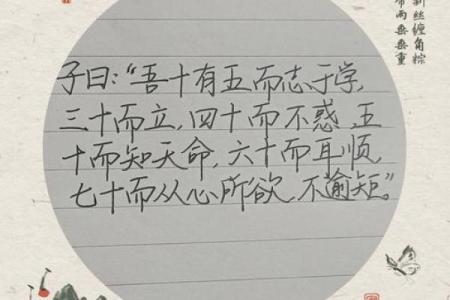 子曰:“吾十有五而志于学,
三十而立,四十而不惑,五
十而知天命,六十而耳顺,
七十而从心所欲,不逾矩。”
彩丝缠角粽
带雨垂垂重